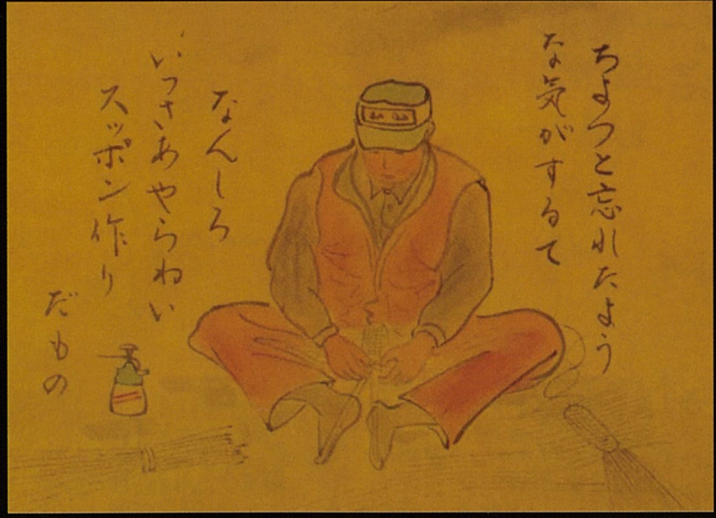 ちよつと忘れたよう
な気がするて
なんしろ
いつさあやらねい
スッポン作り
だもの